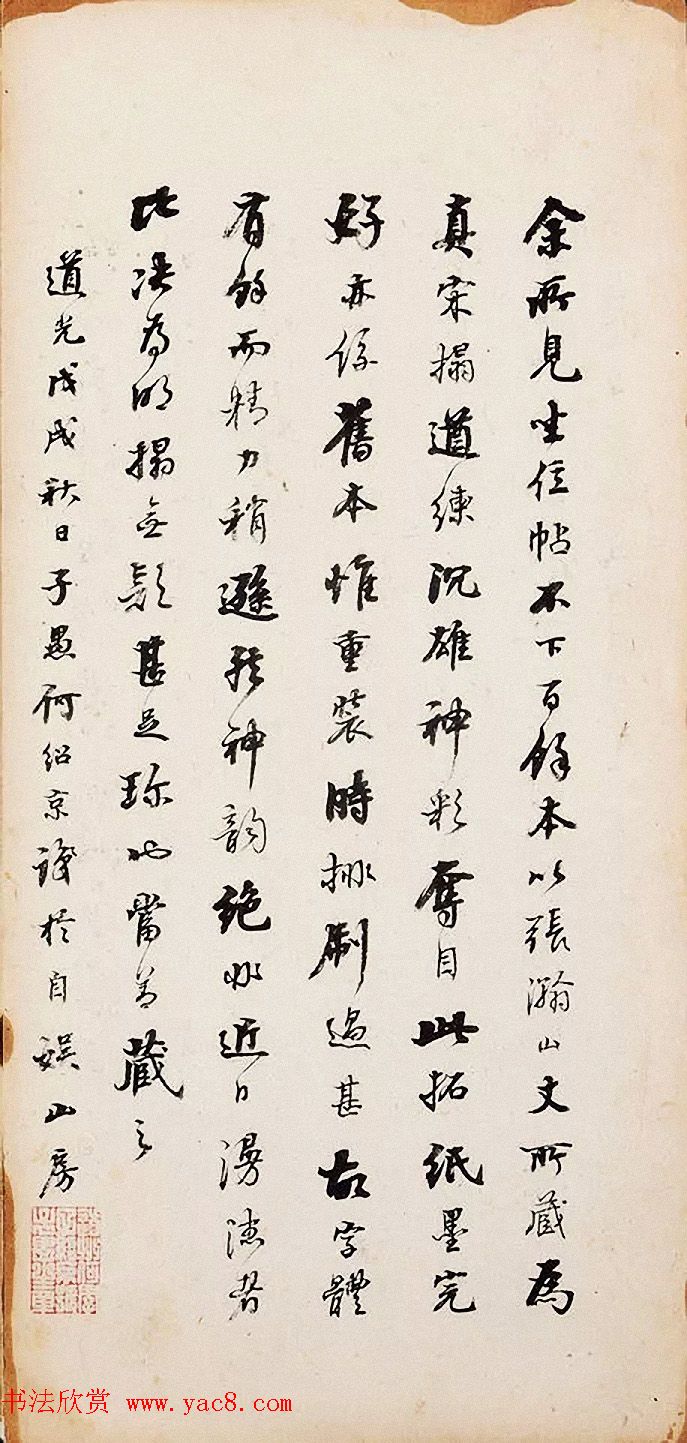 余所見坐位帖不下百餘本以張瀚山丈所藏為
真宋搨遒練沉雄神彩奪目此拓紙墨完
好亦係舊本惟重裝時挑刷過甚故字體
有餘而精力稍遜然神韵絶非近日漫漶者
比决為明搨無疑甚足珍也當善藏之
道光戊戌秋日子愚何紹京識於自娱山房
书法欣赏 www.yac8.com